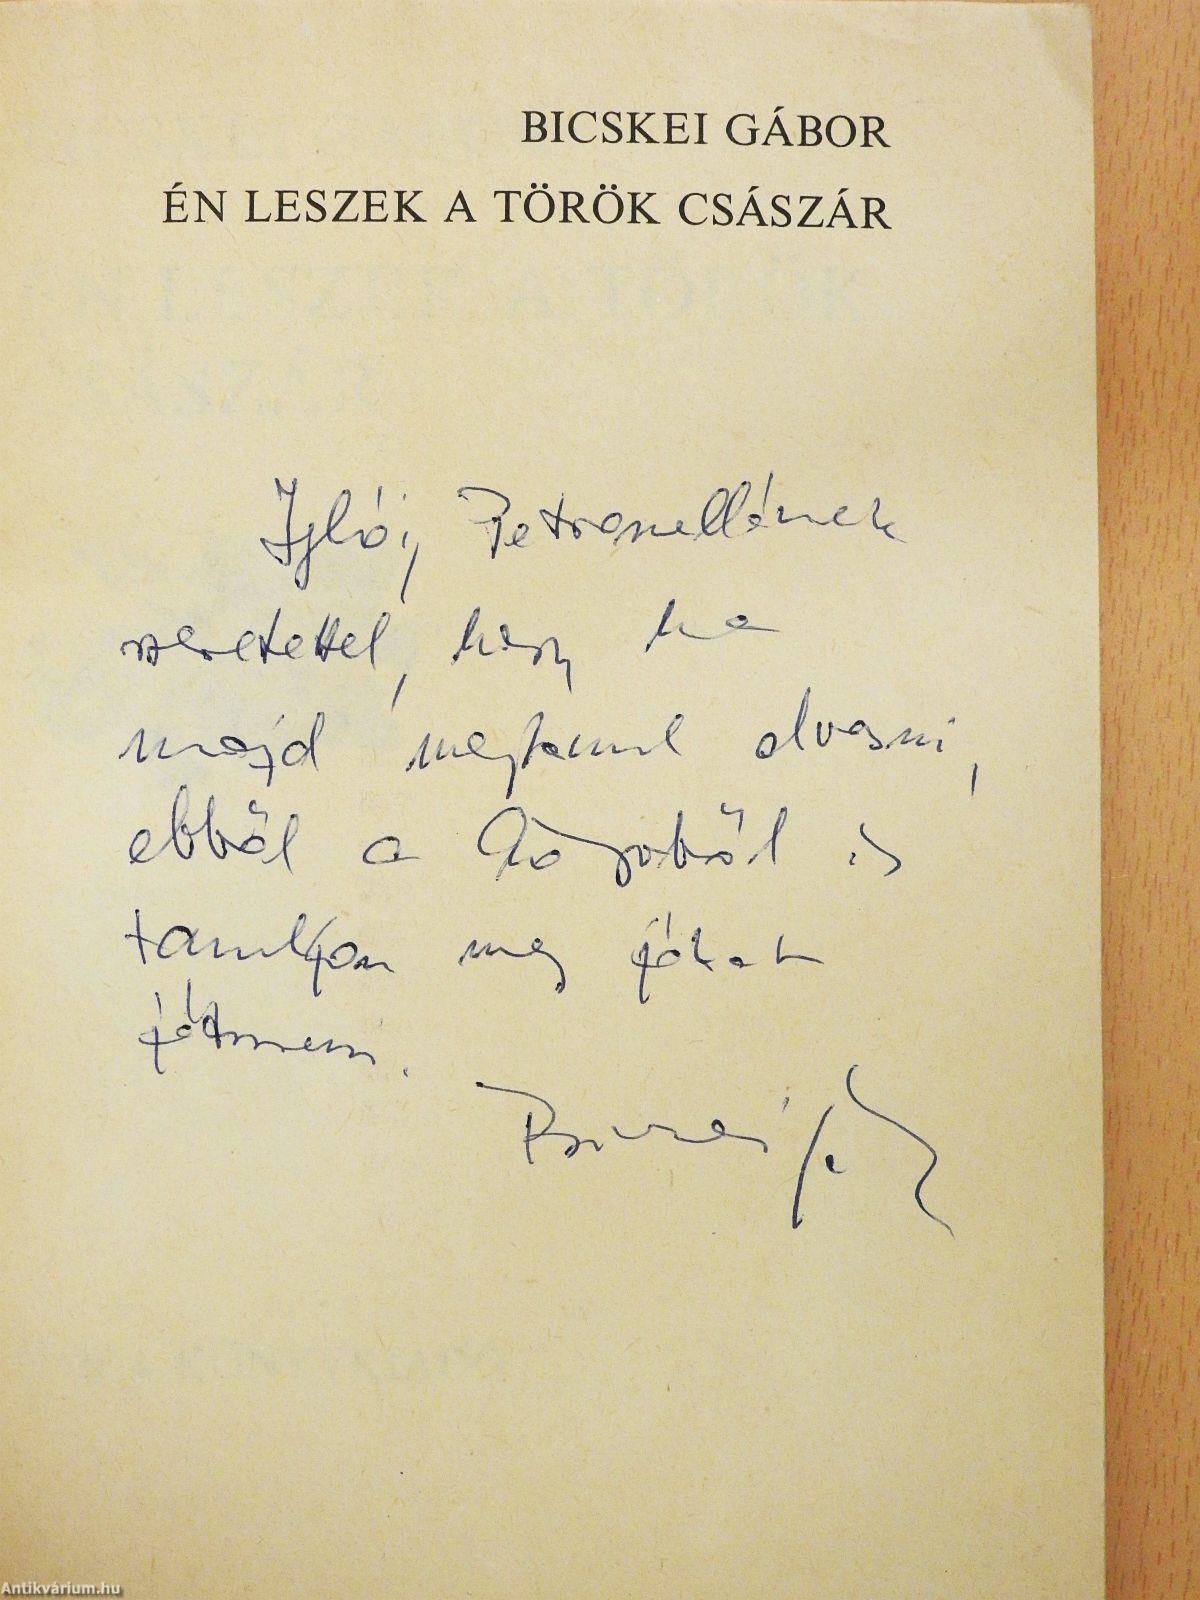 BICSKEI GÁBOR
ÉN LESZEK A TÖRÖK CSÁSZÁR
Iglói Petronellának
szeretettel, hogy ha
majd megtanul olvasni,
ebből a könyvből is
tanuljon meg jókat
játszani.
Bicskei G.
Antikvárium.hu